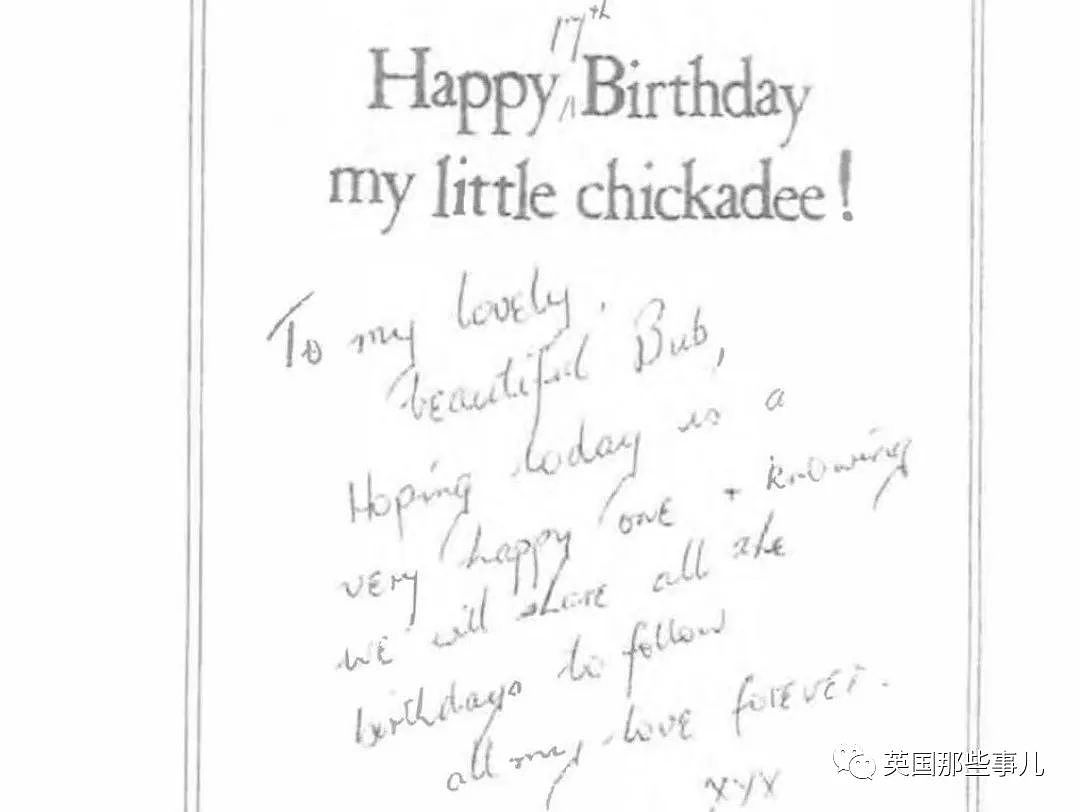 17th
Happy ^ Birthday
my little chickadee!
To my lovely,
beautiful Bub,
Hoping today is a
very happy one + knowing
we will share all the
birthdays to follow
all my love forever.
xyx
英国那些事儿